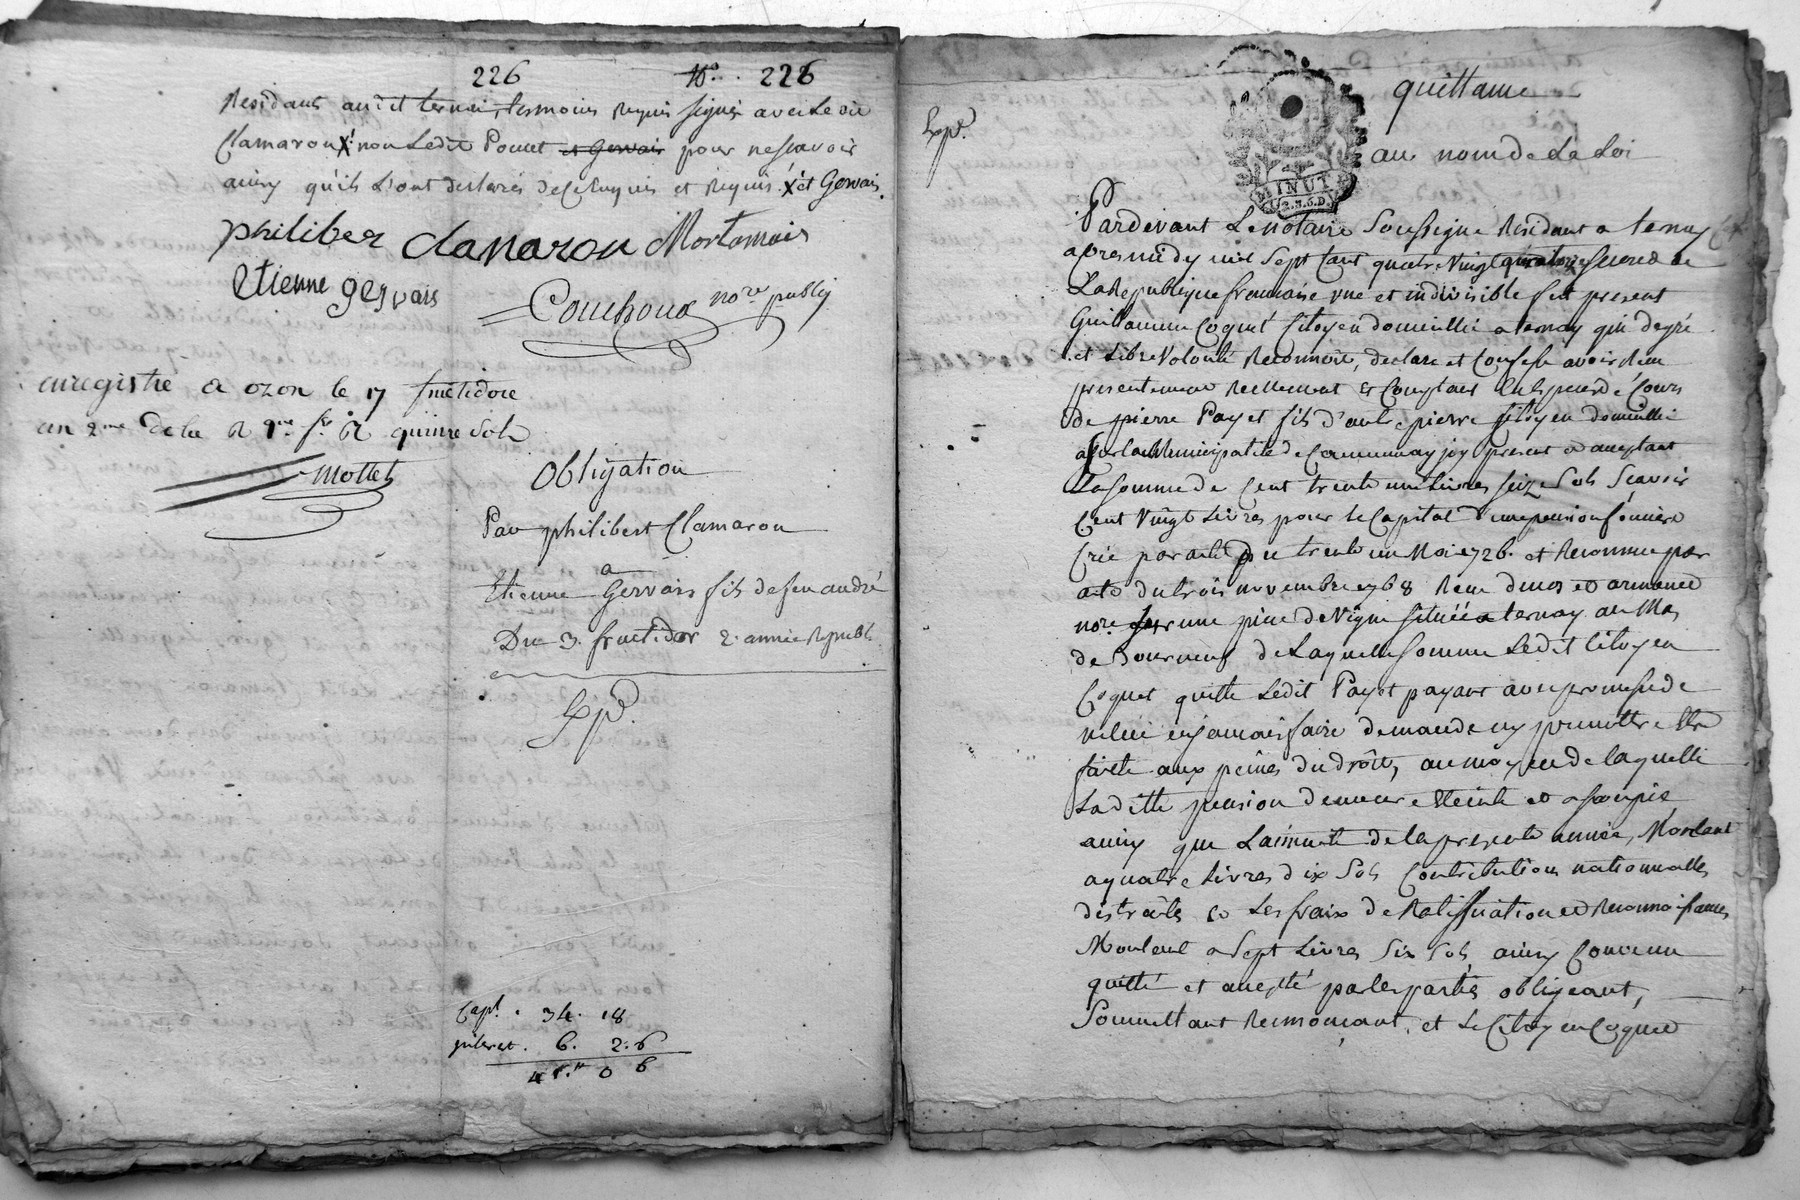 226 No. 226
Residants audit ternai, temoins requis signés avec le dit
Clamaron X non Ledit Pouret et Gervais pour ne scavoir
ainsy qu'ils l'ont declarés de ce enquis et requis. X et Gervais.
philiber clamaron Mortamais
etienne gervais
Couchoud nore public
enregistré a ozon le 17 fructidore
an 2me de la R quinze sols
Mottet
Obligation
Par philibert Clamaron
a
Etienne Gervais fils de feu andré
Du 3. fructidor 2. année Republ.
Exp.
Capl. 34. 18
interet. 6. 2. 6
41.tt 0 6
Exp.
quittance
au nom de La Loi
MINUT
2.S.6.D.
Pardevant Le Notaire Soussigné Residant a ternay
apres midy mil sept cent quatre vingt quatorze second de
La Republique francaise une et indivisible fut present
Guillaume Coquet Citoyen domicillié a ternay qui de gré
et Libre volonté Reconnoit, declare et Confesse avoir Receu
presentement Reellement et Comptant en especes de Cours
de pierre Payet fils d'autre pierre Citoyen domicillié
sur la Municipalité de Communay icy present et acceptant
La somme de Cent trente une Livres seize sols Scavoir
Cent vingt Livres pour le Capital d'une pension fonciere
Crée par acte du trente un Mai 1726. et Reconnue par
acte du trois novembre 1768 Receu
nore sur une piece de Vigne située a ternay au Mas
de de Laquelle somme Ledit Citoyen
Coquet quitte Ledit Payet payant avec promesse de
ne lui en jamais faire demande ny permettre Etre
faitte aux peines du droit, au moyen de laquelle
La ditte pension demeure Eteinte et assoupie
ainsy que La minute de la presente année, Montant
a quatre Livres dix Sols Contributions nationnalles
distraites et Les fraix de Ratiffication et Reconnoissances
Montent a Sept Livres Six Sols, ainsy Convenu
quitté et accepté par les parties obligeant,
Soumettant Renonçant, et Le Citoyen Coquet